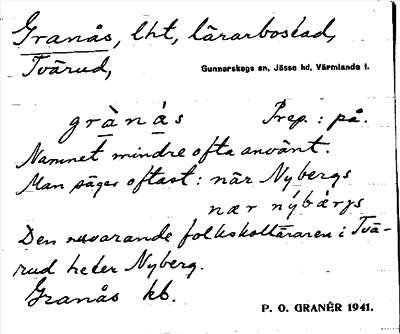 Granås, lht, lärarbostad,
Tvärud,
Gunnarskogs sn, Jösse hd, Värmlands l.
grànás Prep.: på.
Namnet mindre ofta använt.
Man säger oftast: när Nybergs
nær nýbärjs
Den nuvarande folkskolläraren i Tvä-
rud heter Nyberg.
Granås kb.
P. O. GRANÉR 1941.